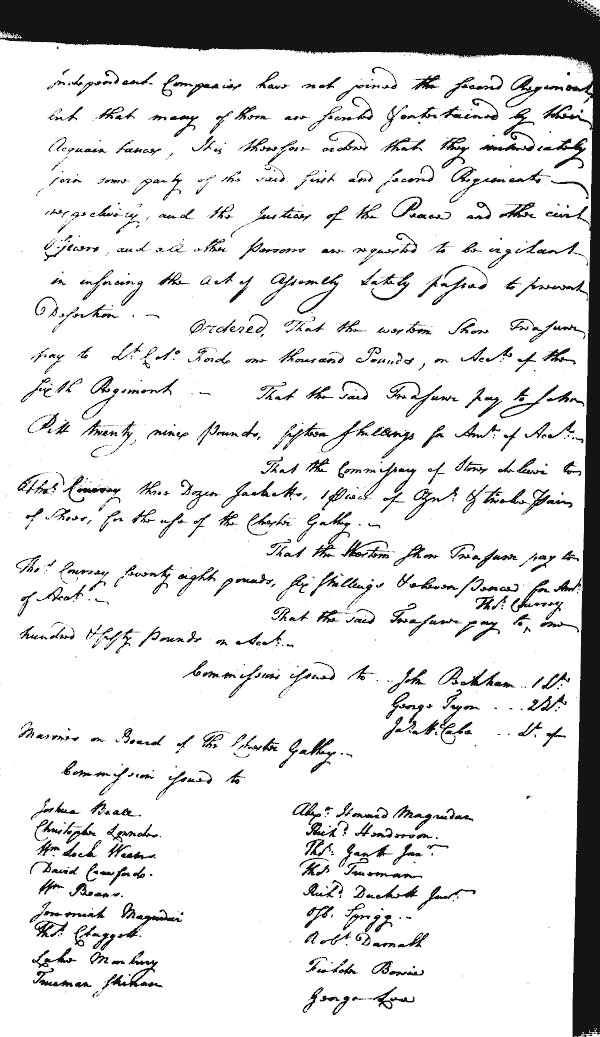 Independent Companies have not joined the second Regiment,
but that many of them are secreted & entertained by their
Acquaintances, It is therefore ordered that they immediately
join some party of the said first and second Regiments
respectively, and the Justices of the Peace and other civil
Officers, and all other Persons are requested to be vigilant
in inforcing the Act of Assembly lately passed to prevent
Desertion. — Ordered, That the western Shore Treasurer
pay to Lt. Colo. Forde one thousand Pounds, on Acct. of the
sixth Regiment — That the said Treasurer pay to John
Pitt twenty, nine Pounds, fifteen shillings for Amt. of Acct.
That the Commissary of Stores deliver to
Thos. Coursey three Dozen Jacketts, 1 Piece of & twelve Pair
of Shoes, for the use of the Chester Galley. —
That the Western Shore Treasurer pay to
Thos. Coursey seventy eight pounds, six shillings & eleven Pence for Amt.
of Acct. —
Thos. Coursey
That the said Treasurer pay to, one
hundred & fifty Pounds on Acct. —
Commissions issued to .. John Beckham .. 1 Lt.
George Tryon .... 2 Lt.
Jas. McCabe ... Lt. of
Marines on Board of the Chester Galley. —
Commission issued to
Joshua Beale. Alexr. Howard Magruder
Christopher Lowndes. Richd. Henderson.
Wm. Lock Weems. Thos. Gantt Junr.
David Crawford. Thos. Trueman
Wm. Beans. Richd. Duckett Junr.
Jeremiah Magruder Osb. Sprigg. —
Thos. Claggett. Robt. Darnall
Luke Marbury Fielder Bowie
Trueman Skinner George Lee